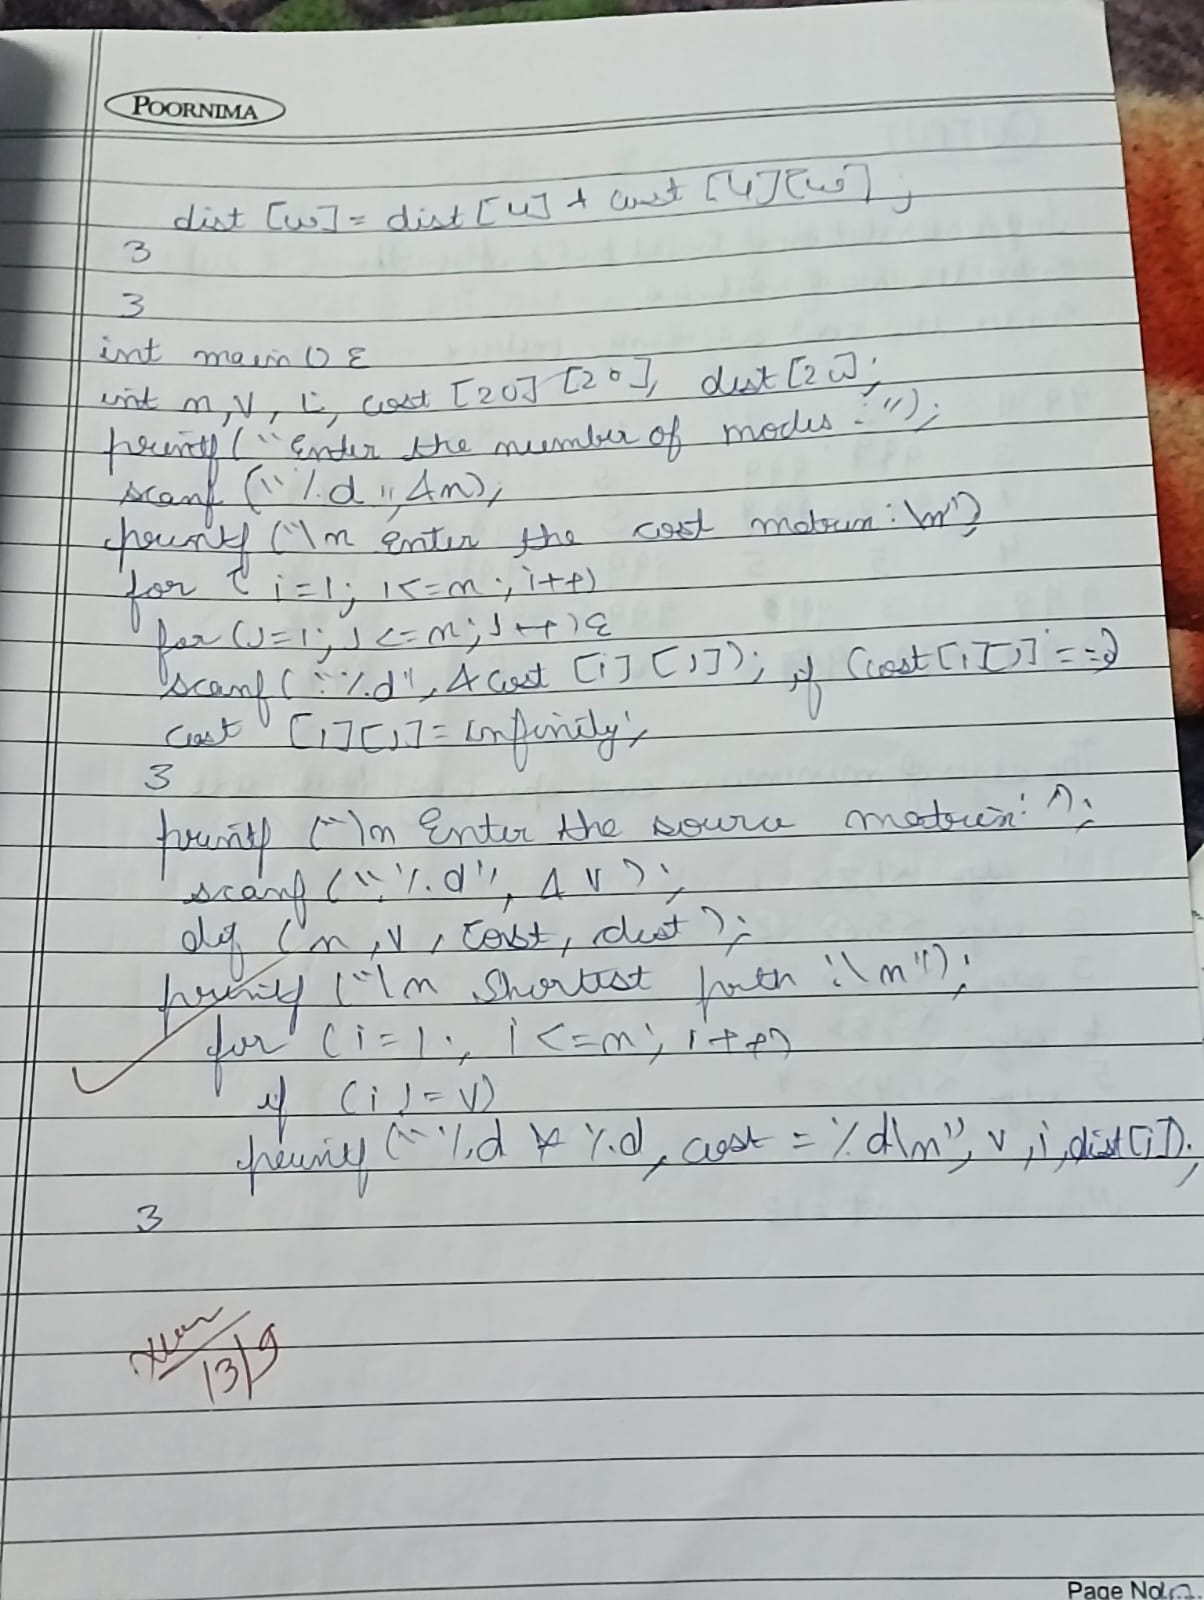 POORNIMA
dist [w] = dist [u] + cost [u][w] ;
}
}
int main () {
int n, v, i, cost [20] [20], dist [20];
printf ("Enter the number of nodes : ");
scanf ("%d", &n);
printf ("\n Enter the cost matrix : \n")
for ( i=1; i<=n ; i++)
for (j=1; j<=n; j++) {
scanf ("%d", & cost [i] [j]); if (cost[i][j] ==
cost [i][j] = infinity;
}
printf ("\n Enter the source matrix: ");
scanf ("%d", & v);
dij (n, v, cost, dist);
printf ("\n Shortest path : \n");
for (i=1; i<=n; i++)
if (i != v)
printf ("%d %d, cost = %d\n", v, i, dist[i]);
}
13/9
Page No.